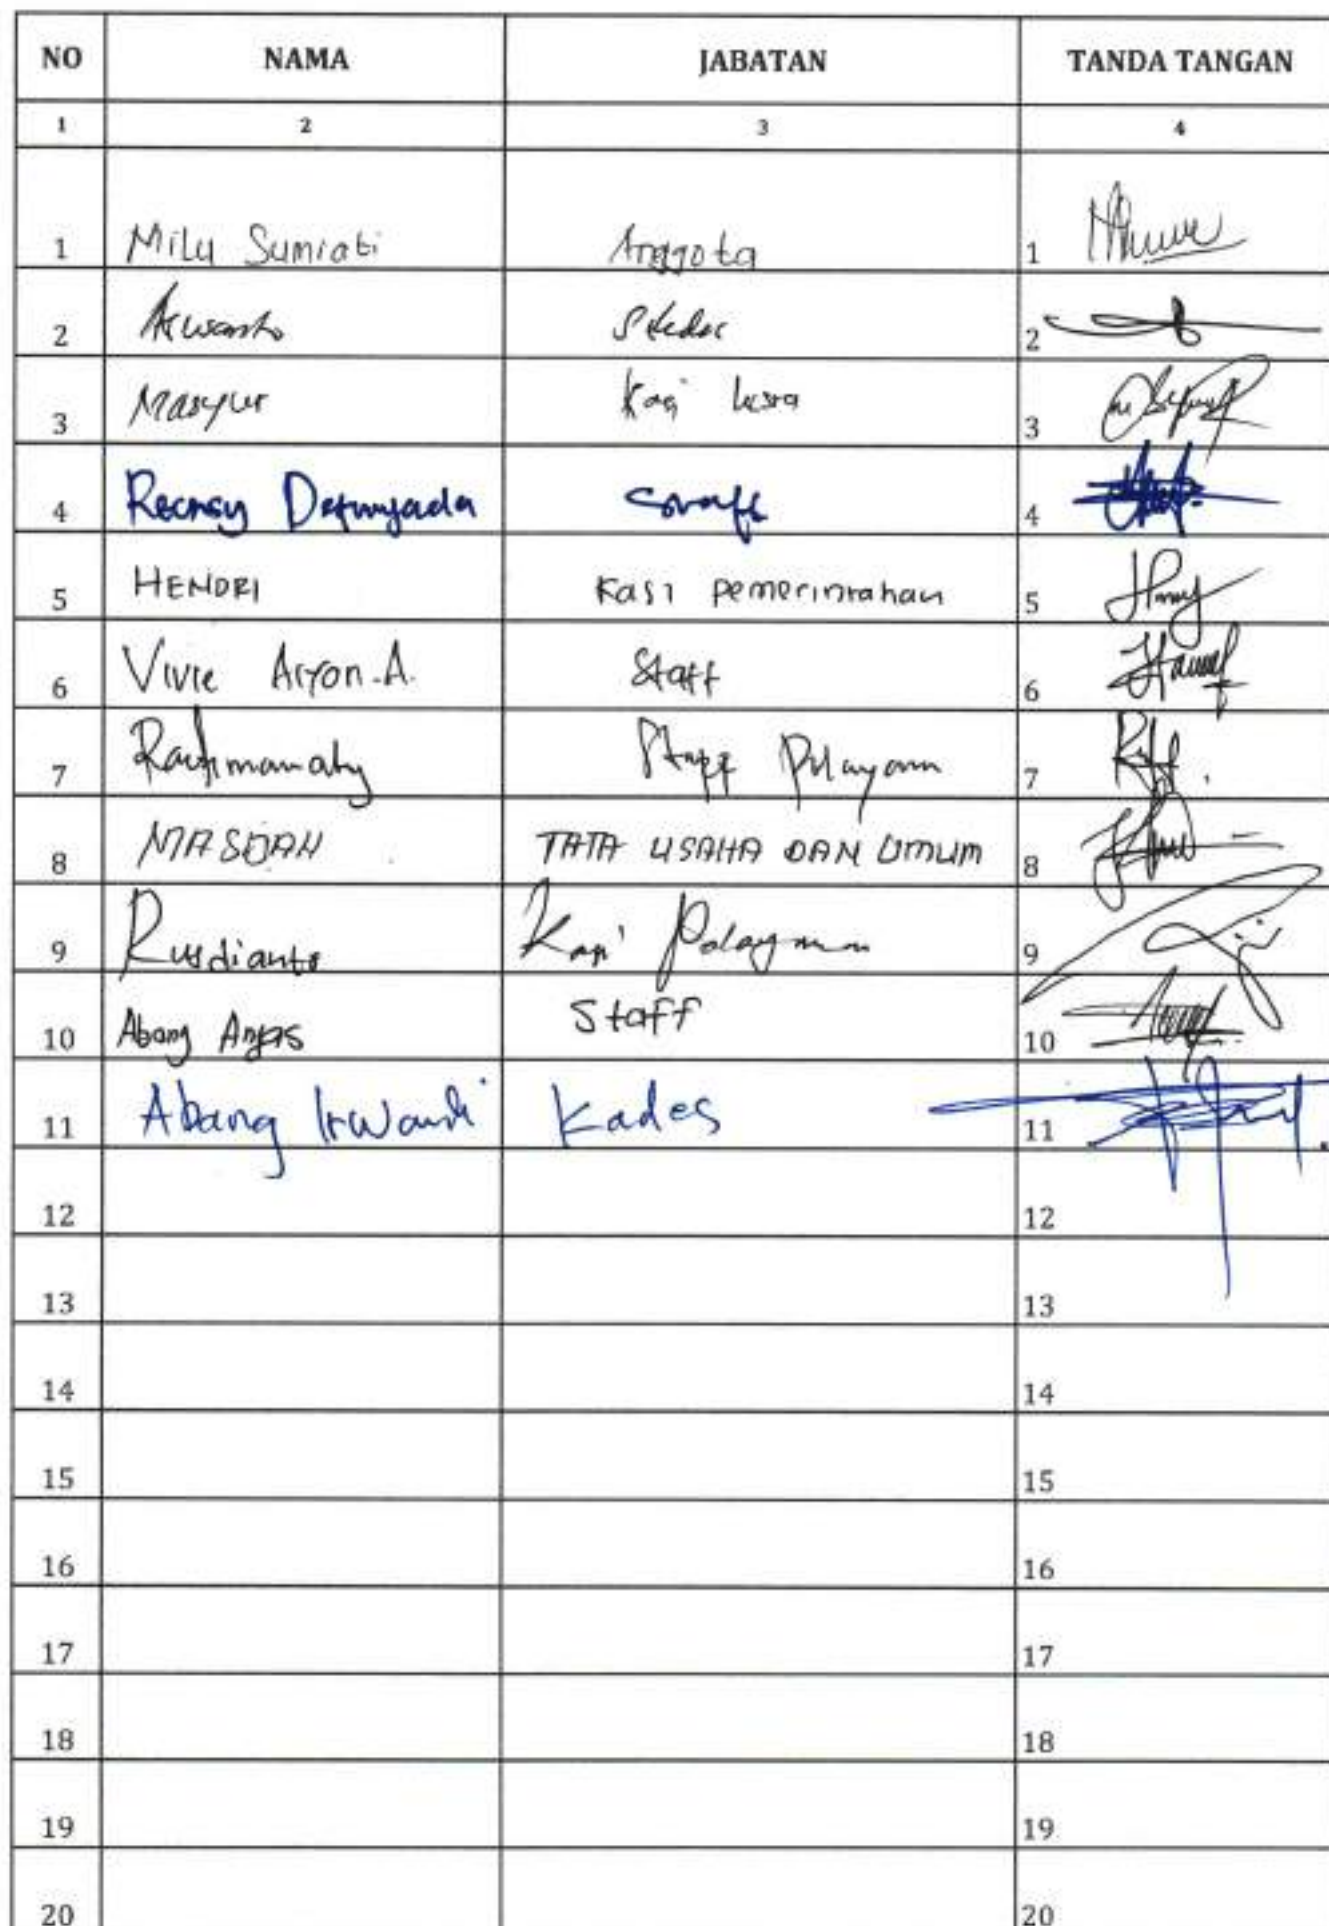 NO NAMA JABATAN TANDA TANGAN
1 2 3 4
1 Mily Sumiati Anggota 1
2 Arwanto Sekdes 2
3 Masyur Kasi kesra 3
4 4
5 HENDRI Kasi pemerintahan 5
6 Vivie Aryon.A. Staff 6
7 Rachmanaty Staff Pelayanan 7
8 MASDAH TATA USAHA DAN UMUM 8
9 Rusdianto Kasi Pelayanan 9
10 Abang Angas Staff 10
11 Abang Irwandi Kades 11
12 12
13 13
14 14
15 15
16 16
17 17
18 18
19 19
20 20